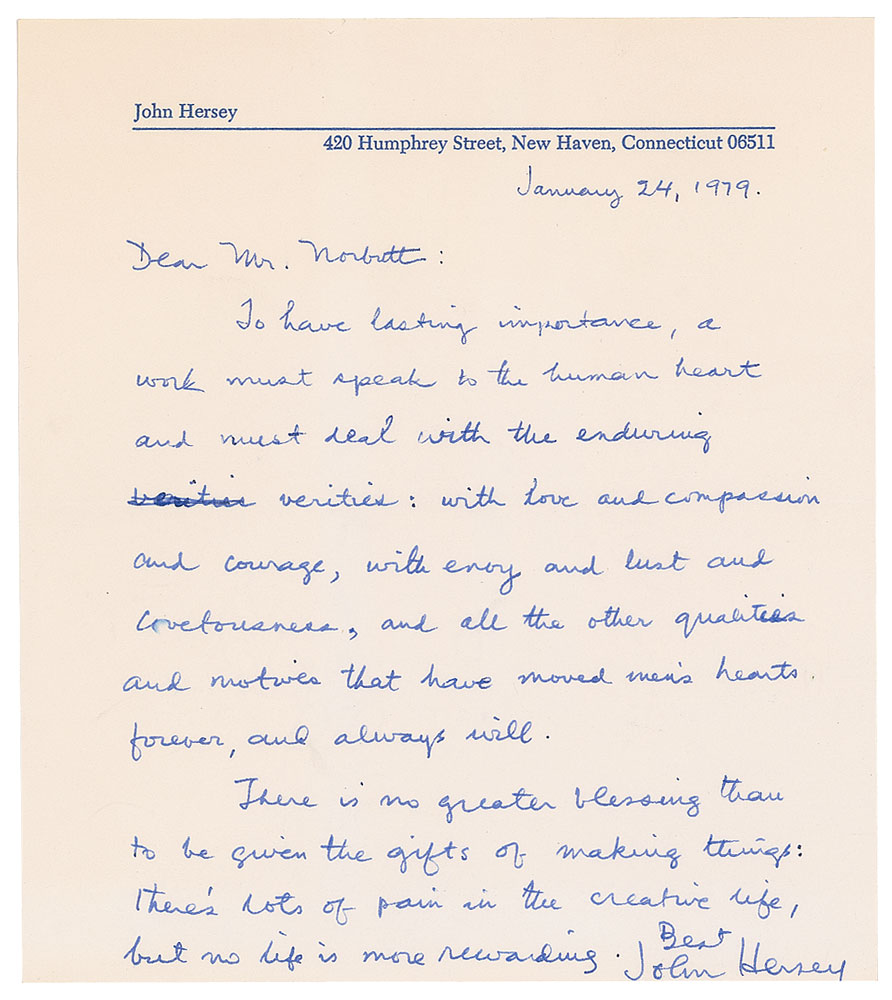 John Hersey
420 Humphrey Street, New Haven, Connecticut 06511
January 24, 1979.
Dear Mr. Norbutt:
To have lasting importance, a
work must speak to the human heart
and must deal with the enduring
verities verities: with love and compassion
and courage, with envy and lust and
covetousness, and all the other qualities
and motives that have moved men's hearts
forever, and always will.
There is no greater blessing than
to be given the gifts of making things:
There's lots of pain in the creative life,
but no life is more rewarding.
Best
John Hersey